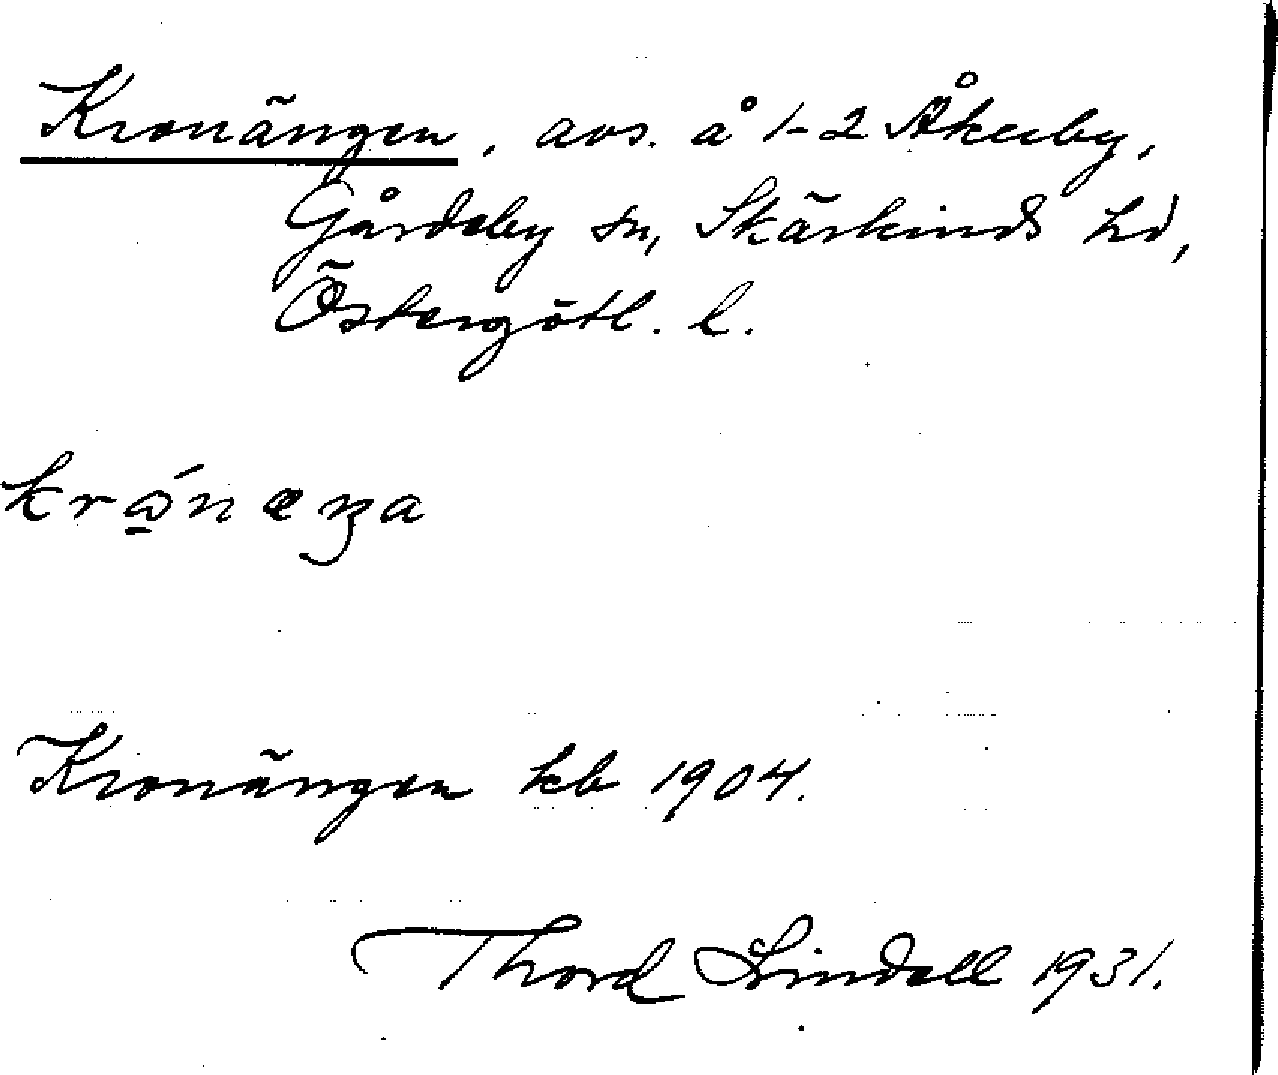 Kronängen, avs. å 1-2 Åkerby,
Gårdeby sn, Skärkinds hd,
Östergötl. l.
krώ̱næŋa
Kronängen kb 1904.
Thord Lindell 1931.